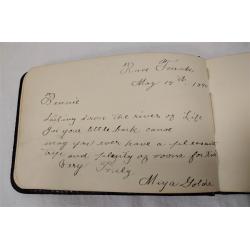 May 12th 18
Bennie
Sailing down the river of Life
In your little bark canoe
may you ever have a pleasant
and plenty of room for
Very Truly
Miya Golde